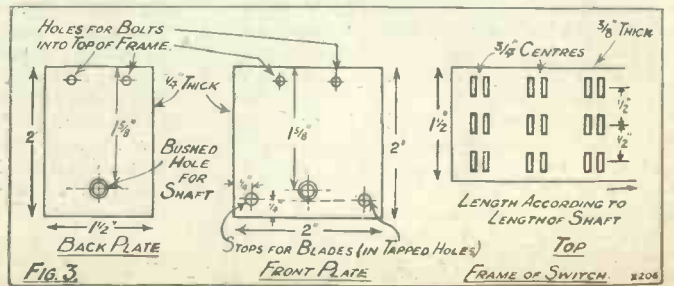 HOLES FOR BOLTS
INTO TOP OF FRAME.
2"
1 5/8"
1/4" THICK
BUSHED
HOLE
FOR
SHAFT
1 1/2"
BACK PLATE
1 5/8"
2"
1/4"
1/4"
2"
STOPS FOR BLADES (IN TAPPED HOLES)
FRONT PLATE
3/8" THICK
3/4" CENTRES
1 1/2"
1/2"
1/2"
LENGTH ACCORDING TO
LENGTH OF SHAFT
TOP
FRAME OF SWITCH.
FIG. 3.
X206